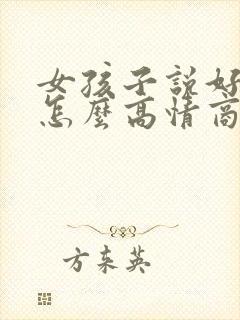 女孩子説好
怎麼高情商
方東英